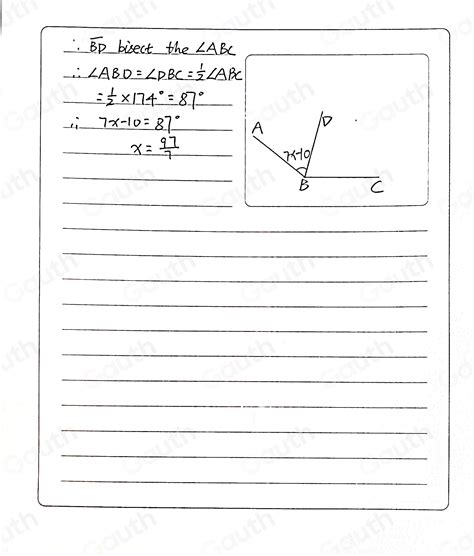 ∵ BD bisect the ∠ABC
∴ ∠ABD = ∠DBC = 1/2 ∠ABC
= 1/2 × 174° = 87°
∴ 7x-10 = 87°
x = 97/7
A
D
7x-10
B
C